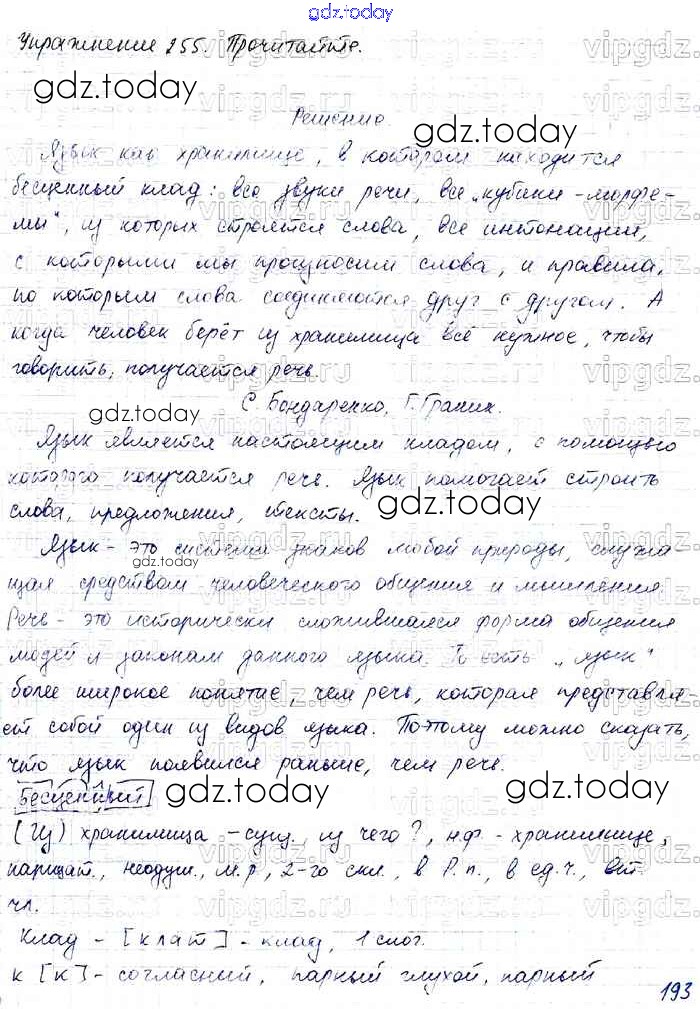 gdz.today
Упражнение 255. Прочитайте.
Решение.
Язык как хранилище, в котором находится
бесценный клад: все звуки речи, все „кубики-морфе-
мы", из которых строятся слова, все интонации,
с которыми мы произносим слова, и правила,
по которым слова соединяются друг с другом. А
когда человек берёт из хранилища всё нужное, чтобы
говорить, получается речь.
С. Бондаренко, Г. Граник.
Язык является настоящим кладом, с помощью
которого получается речь. Язык помогает строить
слова, предложения, тексты.
Язык - это система знаков любой природы, служа
щая средством человеческого общения и мышления
Речь - это исторически сложившаяся форма общения
людей и законам данного языка. То есть „язык"
более широкое понятие, чем речь, которая представля-
ет собой один из видов языка. Поэтому можно сказать,
что язык появился раньше, чем речь.
Бесценный
(Из) хранилища - сущ., из чего?, н.ф. - хранилище,
нарицат., неодуш., м.р, 2-го скл., в Р.п., в ед.ч.,
чл.
Клад - [клат] - клад, 1 слог.
к [к] - согласный, парный глухой, парный
193
gdz.today
gdz.today
gdz.today
gdz.today
gdz.today
gdz.today
gdz.today
vipgdz.ru